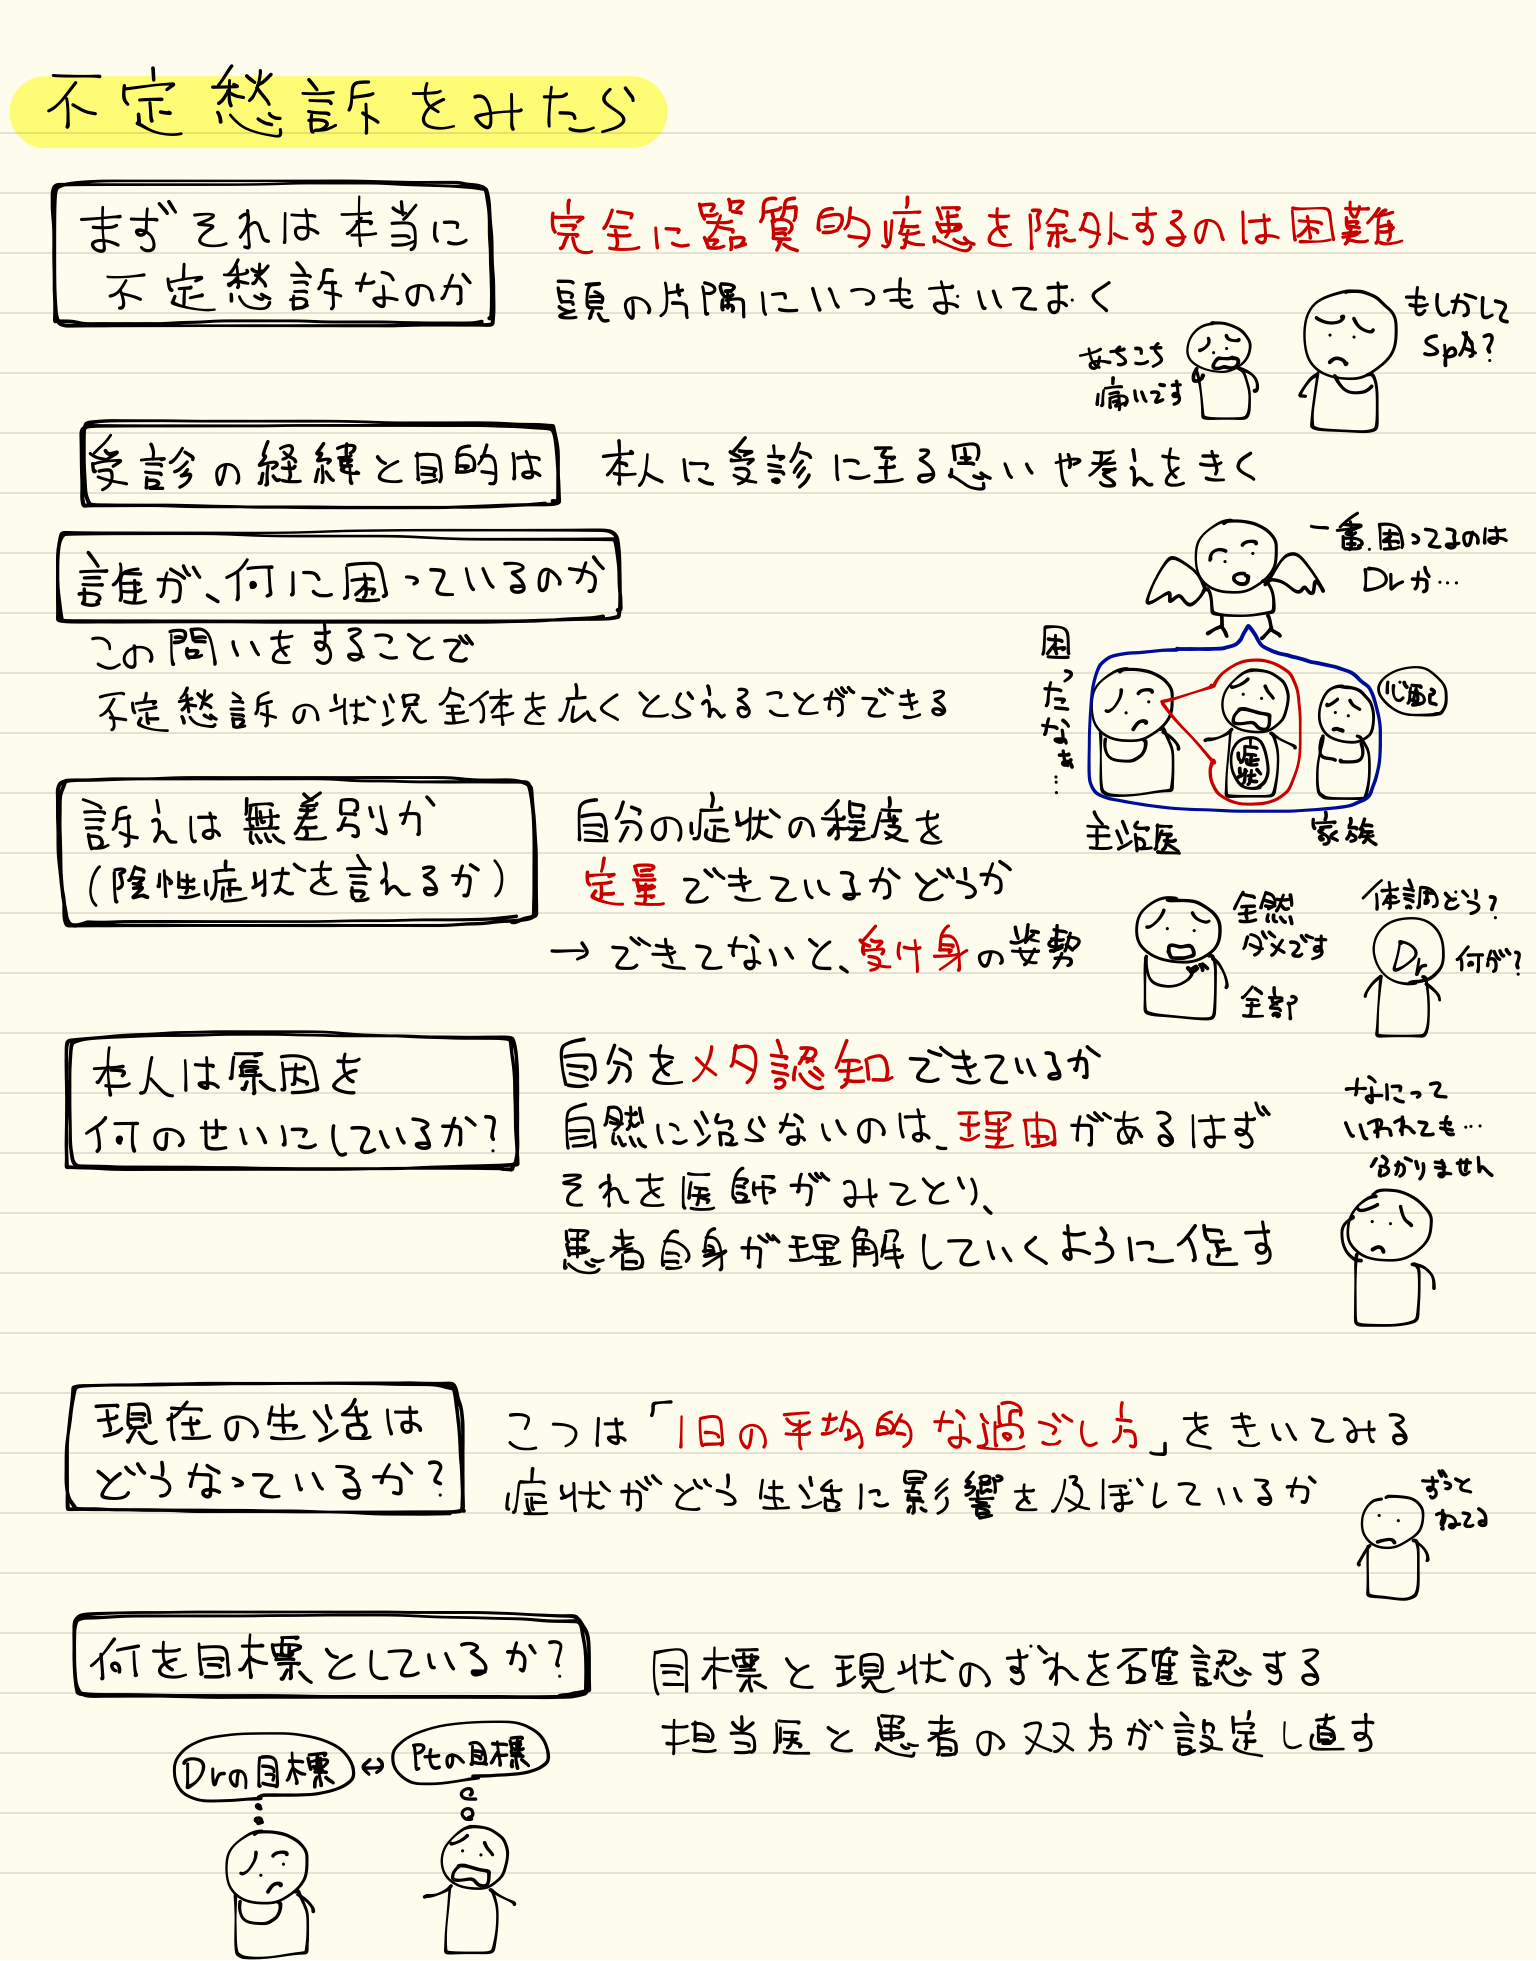 不定愁訴をみたら
まずそれは本当に
不定愁訴なのか
完全に器質的疾患を除外するのは困難
頭の片隅にいつもおいておく
あちこち
痛いです
もしかして
SpA?
受診の経緯と目的は
本人に受診に至る思いや考えをきく
誰が、何に困っているのか
この問いをすることで
不定愁訴の状況全体を広くとらえることができる
一番困ってるのは
Drか…
困ったなぁ…
症状
心配
主治医
家族
訴えは無差別か
(陰性症状を言えるか)
自分の症状の程度を
定量できているかどうか
→できてないと、受け身の姿勢
全然
ダメです
全部
体調どう?
何が?
Dr
本人は原因を
何のせいにしているか?
自分をメタ認知できているか
自然に治らないのは、理由があるはず
それを医師がみてとり、
患者自身が理解していくように促す
なにって
いわれても…
分かりません
現在の生活は
どうなっているか?
こつは「1日の平均的な過ごし方」をきいてみる
症状がどう生活に影響を及ぼしているか
ずっと
ねてる
何を目標としているか?
目標と現状のずれを確認する
担当医と患者の双方が設定し直す
Drの目標 ↔ Ptの目標